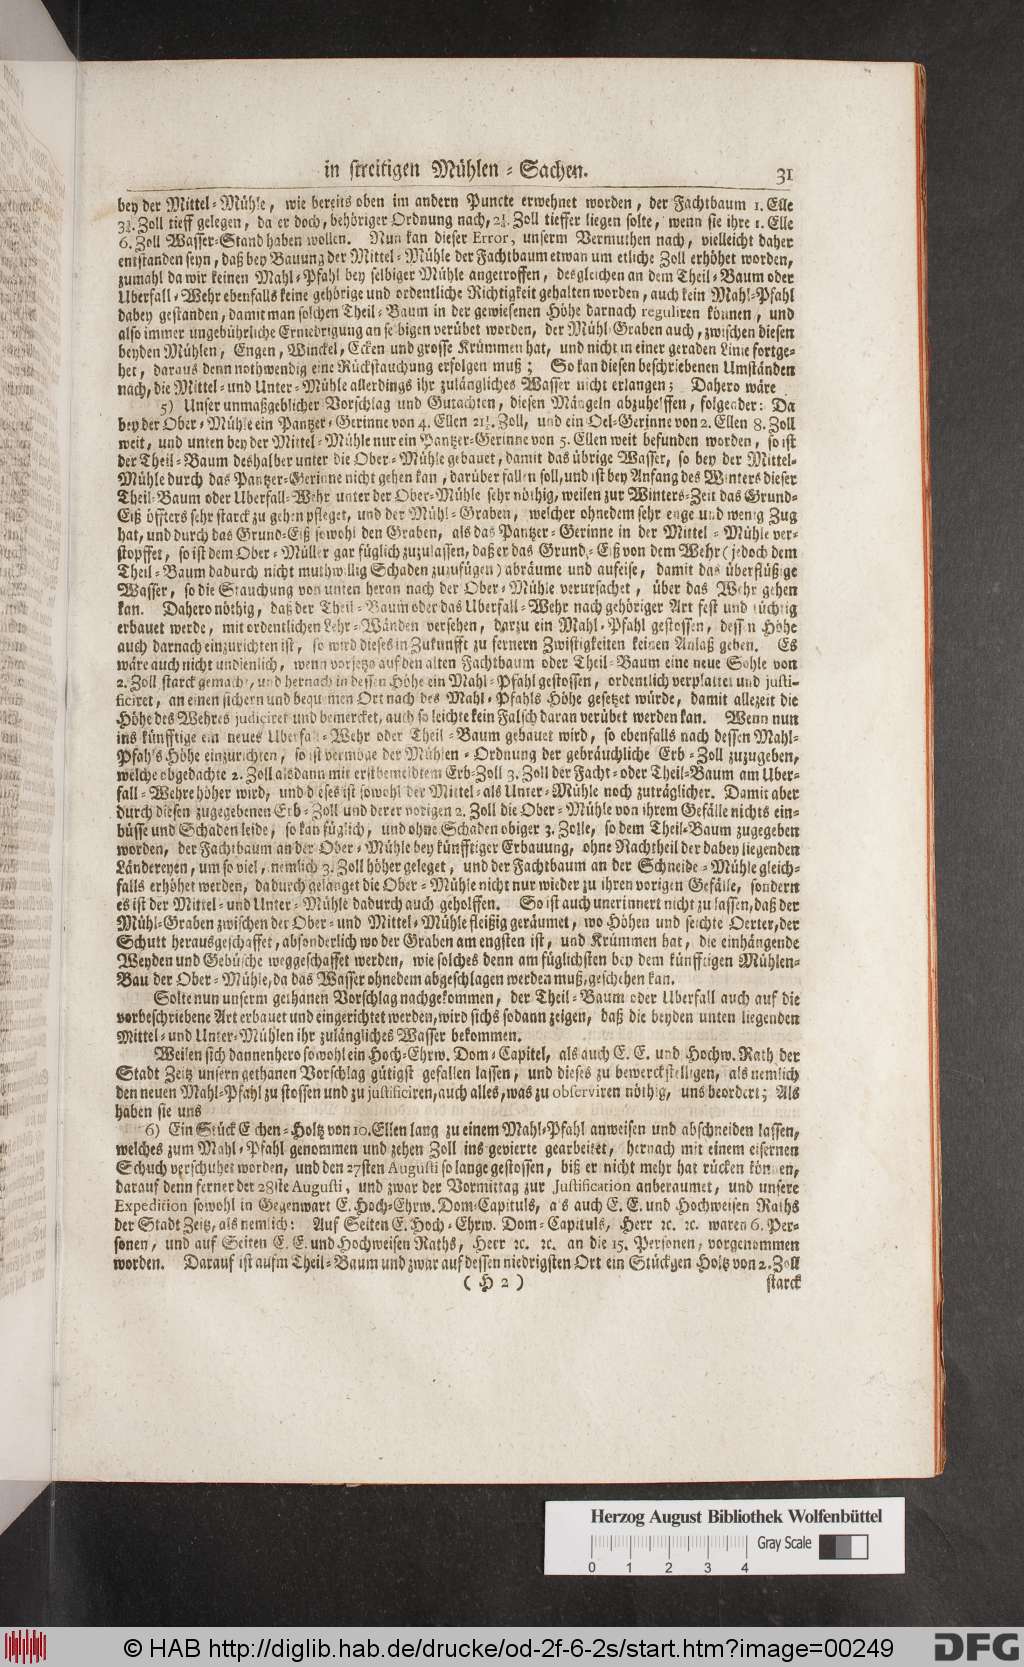 in streitigen Mühlen-Sachen. 31
bey der Mittel-Mühle, wie bereits oben im andern Puncte erwehnet worden, der Fachtbaum 1. Elle
Zoll tieff gelegen, da er doch, behöriger Ordnung nach, Zoll tieffer liegen solte, wenn sie ihre 1. Elle
6. Zoll Wasser-Stand haben wollen. Nun kan dieser Error, unserm Vermuthen nach, vielleicht daher
entstanden seyn, daß bey Bauung der Mittel-Mühle der Fachtbaum etwan um etliche Zoll erhöhet worden,
zumahl da wir keinen Mahl-Pfahl bey selbiger Mühle angetroffen, desgleichen an dem Theil-Baum oder
Uberfall-Wehr ebenfalls keine gehörige und ordentliche Richtigkeit gehalten worden, auch kein Mahl-Pfahl
dabey gestanden, damit man solchen Theil-Baum in der gewiesenen Höhe darnach reguliren können, und
also immer ungebührliche Erniedrigung an selbigen verübet worden, der Mühl-Graben auch, zwischen diesen
beyden Mühlen, Engen, Winckel, Ecken und grosse Krümmen hat, und nicht in einer geraden Linie fortge-
het, daraus denn nothwendig eine Rückstauchung erfolgen muß; So kan diesen beschriebenen Umständen
nach, die Mittel- und Unter-Mühle allerdings ihr zulängliches Wasser nicht erlangen; Dahero wäre
5) Unser unmaßgeblicher Vorschlag und Gutachten, diesen Mängeln abzuhelffen, folgender: Da
bey der Ober-Mühle ein Pantzer-Gerinne von 4. Ellen 21½. Zoll, und ein Oel-Gerinne von 2. Ellen 8. Zoll
weit, und unten bey der Mittel-Mühle nur ein Pantzer-Gerinne von 5. Ellen weit befunden worden, so ist
der Theil-Baum deshalber unter die Ober-Mühle gebauet, damit das übrige Wasser, so bey der Mittel-
Mühle durch das Pantzer-Gerinne nicht gehen kan, darüber fallen soll, und ist bey Anfang des Winters dieser
Theil-Baum oder Uberfall-Wehr unter der Ober-Mühle sehr nöthig, weilen zur Winters-Zeit das Grund-
Eiß öffters sehr starck zu gehen pfleget, und der Mühl-Graben, welcher ohnedem sehr enge und wenig Zug
hat, und durch das Grund-Eiß sowohl den Graben, als das Pantzer-Gerinne in der Mittel-Mühle ver-
stopffet, so ist dem Ober-Müller gar füglich zuzulassen, daß er das Grund-Eiß von dem Wehr (jedoch dem
Theil-Baum dadurch nicht muthwillig Schaden zuzufügen) abräume und aufeise, damit das überflüßige
Wasser, so die Stauchung von unten heran nach der Ober-Mühle verursachet, über das Wehr gehen
kan. Dahero nöthig, daß der Theil-Baum oder das Uberfall-Wehr nach gehöriger Art fest und tüchtig
erbauet werde, mit ordentlichen Lehr-Wänden versehen, darzu ein Mahl-Pfahl gestossen, dessen Höhe
auch darnach einzurichten ist, so wird dieses in Zukunfft zu fernern Zwistigkeiten keinen Anlaß geben. Es
wäre auch nicht undienlich, wenn vorjetzo auf den alten Fachtbaum oder Theil-Baum eine neue Sohle von
2. Zoll starck gemacht, und hernach in dessen Höhe ein Mahl-Pfahl gestossen, ordentlich verplattet und justi-
ficiret, an einen sichern und bequemen Ort nach des Mahl-Pfahls Höhe gesetzet würde, damit allezeit die
Höhe des Wehres judiciret und bemercket, auch so leichte kein Falsch daran verübet werden kan. Wenn nun
ins künfftige ein neues Uberfall-Wehr oder Theil-Baum gebauet wird, so ebenfalls nach dessen Mahl-
Pfahls Höhe einzurichten, so ist vermöge der Mühlen-Ordnung der gebräuchliche Erb-Zoll zuzugeben,
welche obgedachte 2. Zoll alsdann mit erstbemeldtem Erb-Zoll 3. Zoll der Facht- oder Theil-Baum am Uber-
fall-Wehre höher wird, und dieses ist sowohl der Mittel- als Unter-Mühle noch zuträglicher. Damit aber
durch diesen zugegebenen Erb-Zoll und derer vorigen 2. Zoll die Ober-Mühle von ihrem Gefälle nichts ein-
büsse und Schaden leide, so kan füglich, und ohne Schaden obiger 3. Zolle, so dem Theil-Baum zugegeben
worden, der Fachtbaum an der Ober-Mühle bey künfftiger Erbauung, ohne Nachtheil der dabey liegenden
Ländereyen, um so viel, nemlich 3. Zoll höher geleget, und der Fachtbaum an der Schneide-Mühle gleich-
falls erhöhet werden, dadurch gelanget die Ober-Mühle nicht nur wieder zu ihren vorigen Gefälle, sondern
es ist der Mittel- und Unter-Mühle dadurch auch geholffen. So ist auch unerinnert nicht zu lassen, daß der
Mühl-Graben zwischen der Ober- und Mittel-Mühle fleißig geräumet, wo Höhen und seichte Oerter, der
Schutt herausgeschaffet, absonderlich wo der Graben am engsten ist, und Krümmen hat, die einhängende
Weyden und Gebüsche weggeschaffet werden, wie solches denn am füglichsten bey dem künfftigen Mühlen-
Bau der Ober-Mühle, da das Wasser ohnedem abgeschlagen werden muß, geschehen kan.
Solte nun unserm gethanen Vorschlag nachgekommen, der Theil-Baum oder Uberfall auch auf die
vorbeschriebene Art erbauet und eingerichtet werden, wird sichs sodann zeigen, daß die beyden unten liegenden
Mittel- und Unter-Mühlen ihr zulängliches Wasser bekommen.
Weilen sich dannenhero sowohl ein Hoch-Ehrw. Dom-Capitel, als auch E. E. und Hochw. Rath der
Stadt Zeitz unsern gethanen Vorschlag gütigst gefallen lassen, und dieses zu bewerckstelligen, als nemlich
den neuen Mahl-Pfahl zu stossen und zu justificiren, auch alles, was zu observiren nöthig, uns beordert; Als
haben sie uns
6) Ein Stück Eichen-Holtz von 10. Ellen lang zu einem Mahl-Pfahl anweisen und abschneiden lassen,
welches zum Mahl-Pfahl genommen und zehen Zoll ins gevierte gearbeitet, hernach mit einem eisernen
Schuch verschuhet worden, und den 27sten Augusti so lange gestossen, biß er nicht mehr hat rücken können,
darauf denn ferner der 28ste Augusti, und zwar der Vormittag zur Justification anberaumet, und unsere
Expedition sowohl in Gegenwart E. Hoch-Ehrw. Dom-Capituls, als auch E. E. und Hochweisen Raths
der Stadt Zeitz, als nemlich: Auf Seiten E. Hoch-Ehrw. Dom-Capituls, Herr ꝛc. ꝛc. waren 6. Per-
sonen, und auf Seiten E. E. und Hochweisen Raths, Herr ꝛc. ꝛc. an die 15. Personen, vorgenommen
worden. Darauf ist aufm Theil-Baum und zwar auf dessen niedrigsten Ort ein Stückgen Holtz von 2. Zoll
( H 2 ) starck
Herzog August Bibliothek Wolfenbüttel
Gray Scale
0 1 2 3 4
© HAB http://diglib.hab.de/drucke/od-2f-6-2s/start.htm?image=00249
DFG